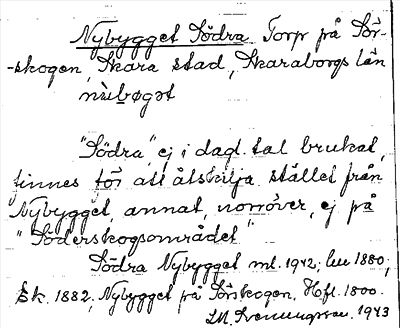 Nybygget Södra Torp på Sör-
-skogen, Skara stad, Skaraborgs län
nỳbøgət
"Södra", ej i dagl. tal brukat,
finnes för att åtskilja stället från
Nybygget, annat, norröver, ej på
"Söderskogsområdet"
Södra Nybygget ml. 1942;
Ek. 1882, Nybygget på Sörskogen, Hofl. 1800.
1943